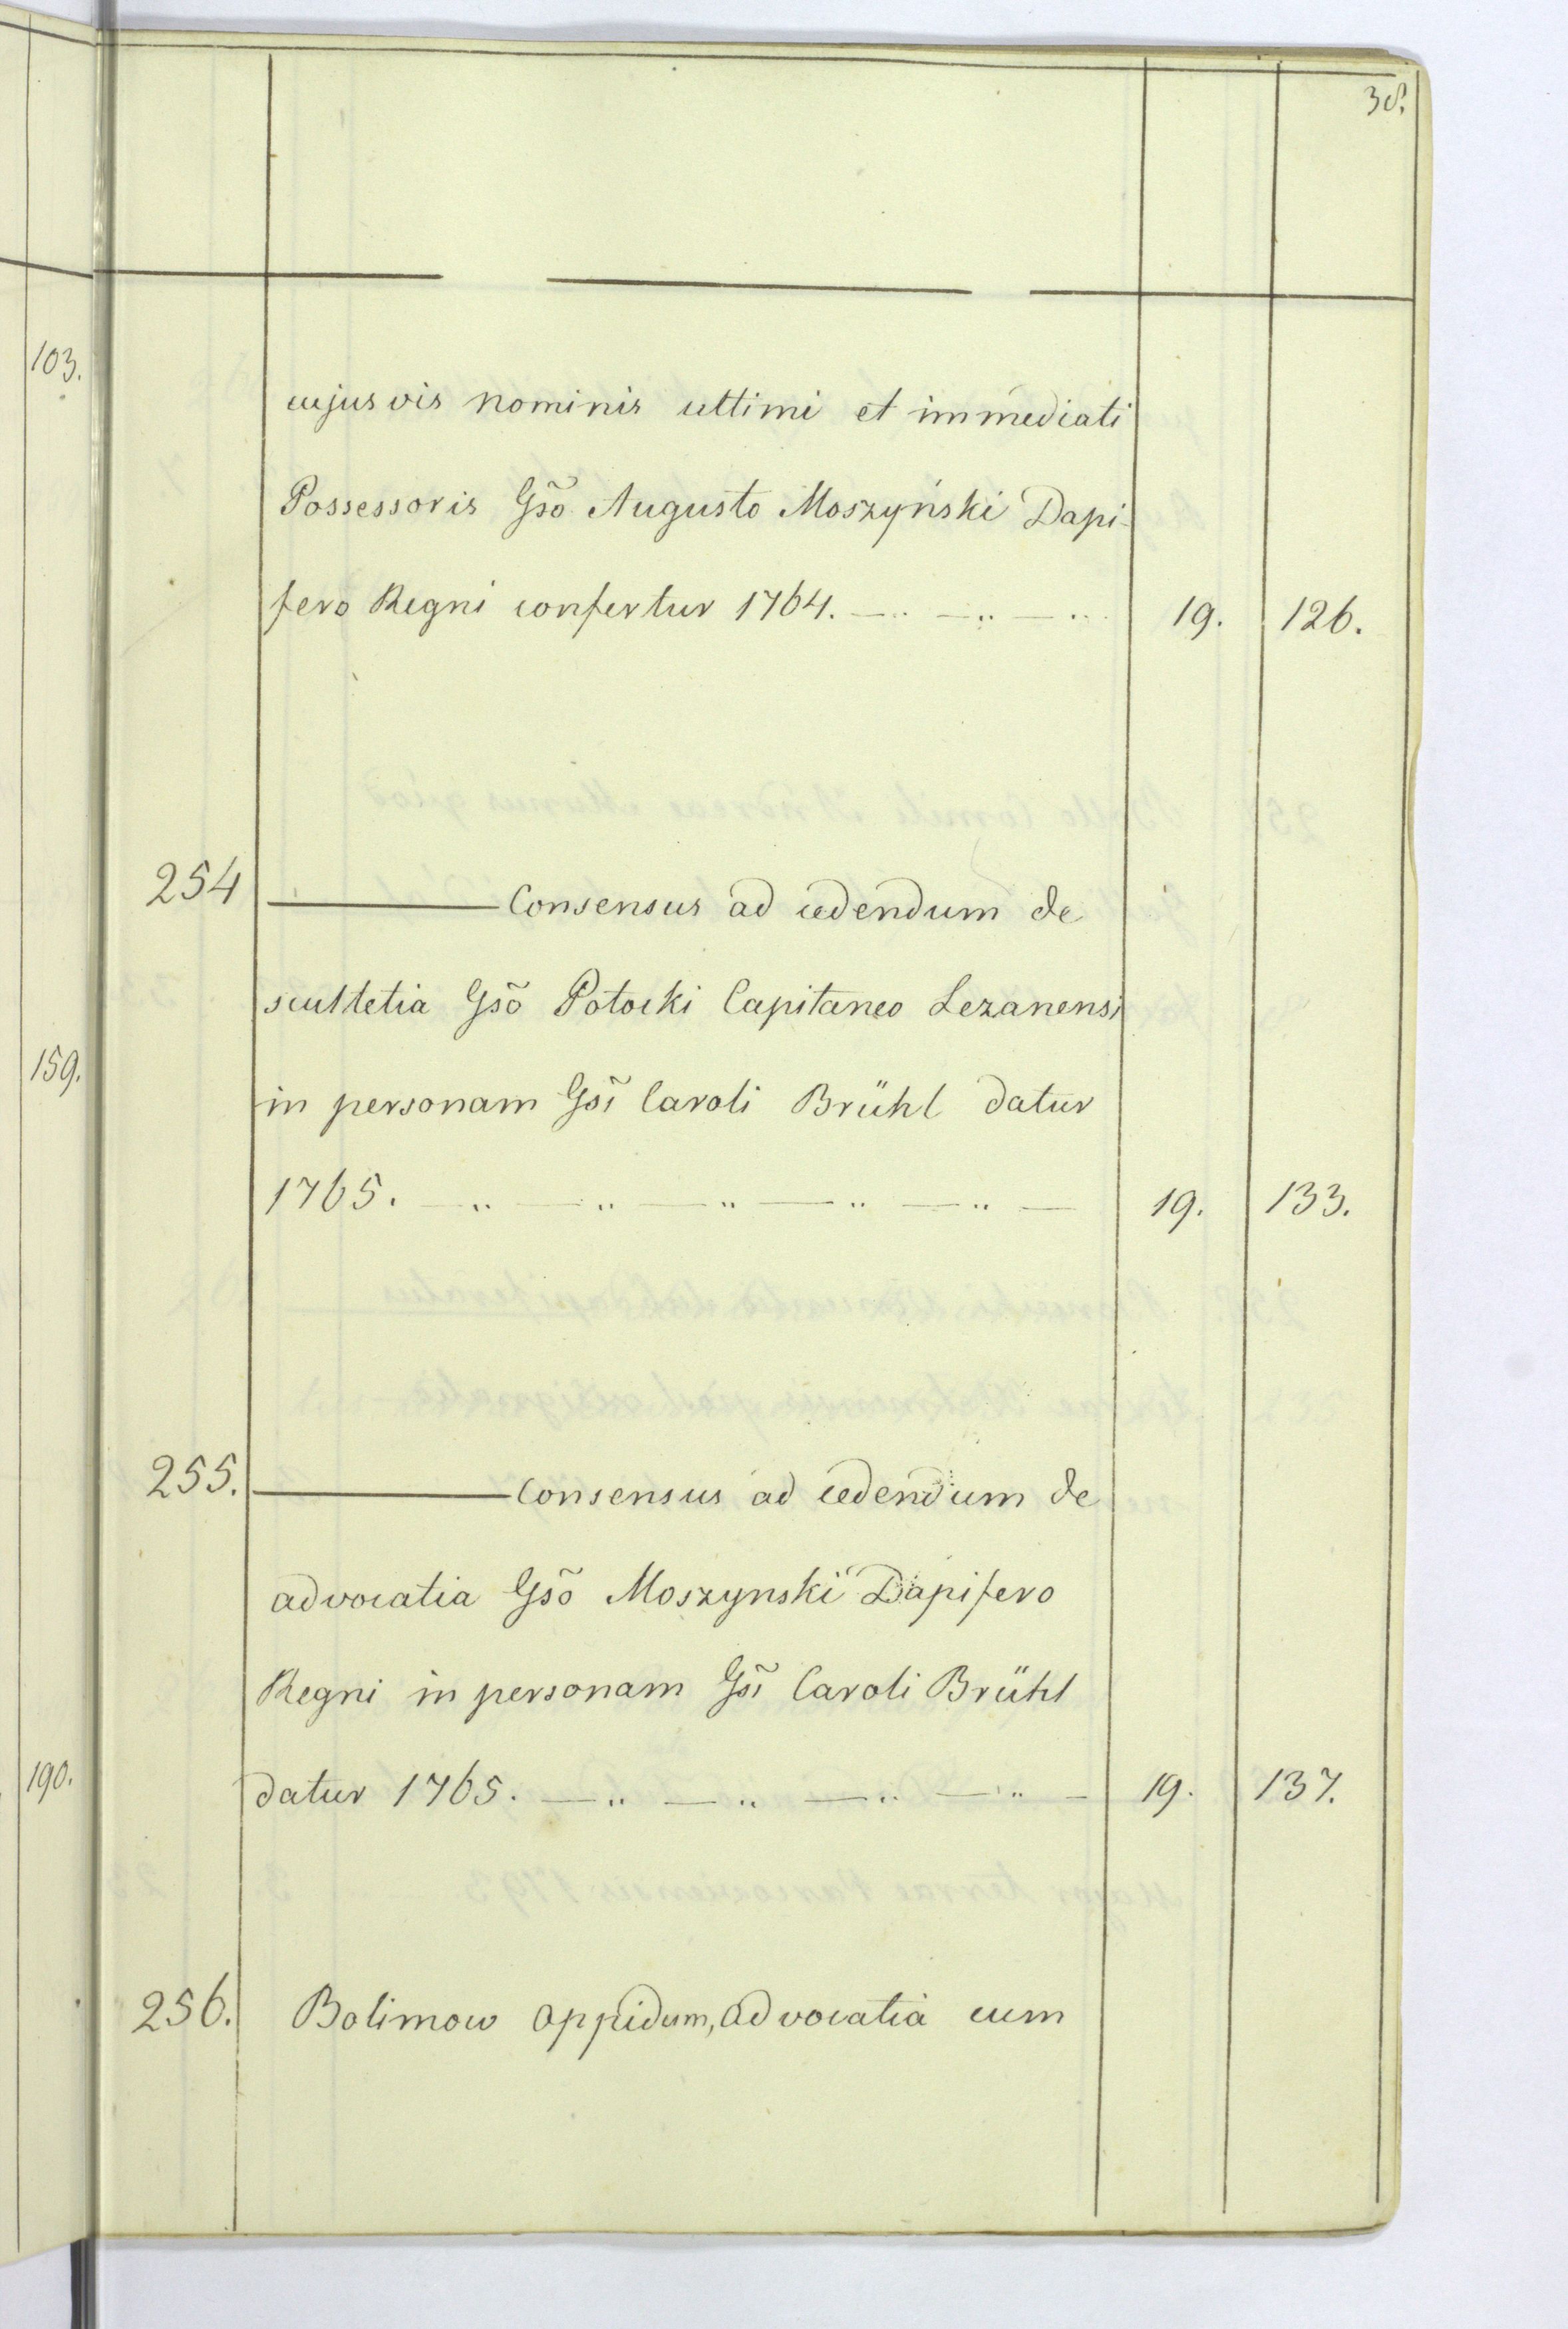 38.
103.
cujusvis nominis ultimi et immediati
Possessoris Gso̅ Augusto Moszyński Dapi-
fero Regni confertur 1764. — .. — .. — .. 19. 126.
254 ——— Consensus ad cedendum de
scultetia Gso̅ Potocki Capitaneo Lezanensi
159.
in personam Gsi̅ Caroli Brühl datur
1765. — .. — .. — .. — .. — .. — 19. 133.
255. ——— Consensus ad cedendum de
advocatia Gso̅ Moszynski Dapifero
Regni in personam Gsi̅ Caroli Brühl
190.
datur 1765. — .. — .. — .. — .. — 19. 137.
256. Bolimow oppidum, advocatia cum